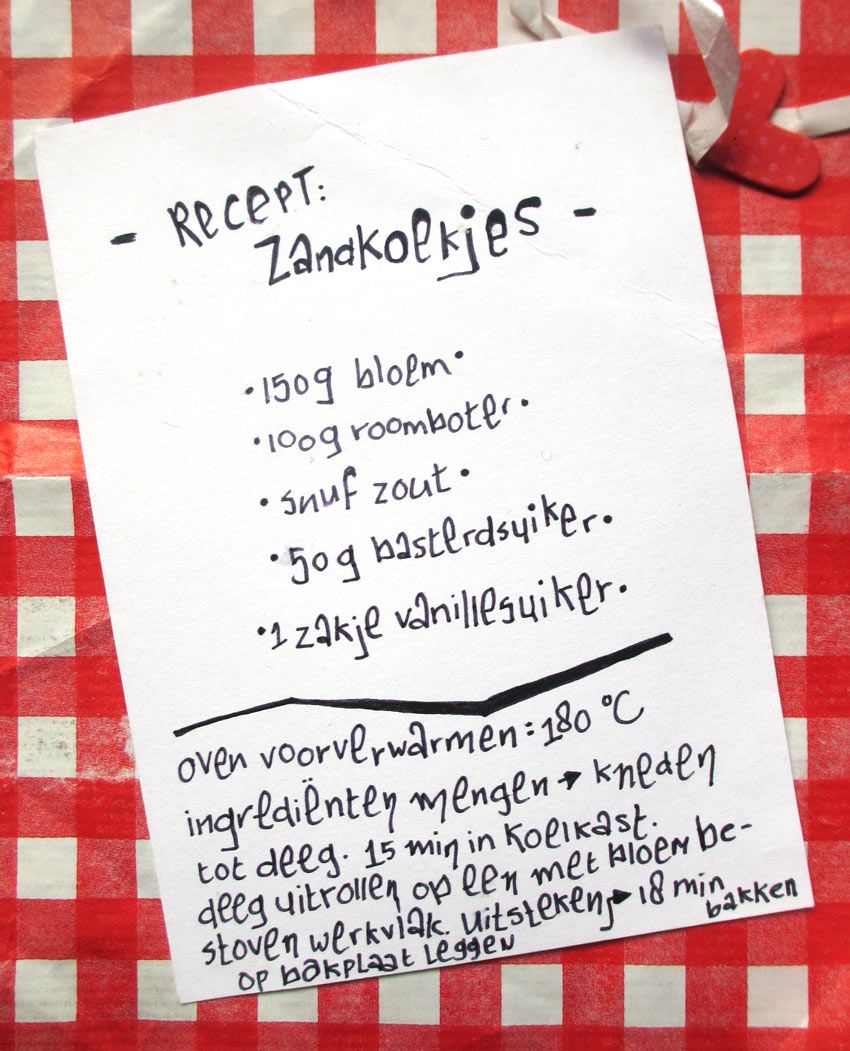 - Recept:
Zandkoekjes -
• 150g bloem •
• 100g roomboter •
• snuf zout •
• 50g basterdsuiker •
• 1 zakje vanillesuiker •
oven voorverwarmen: 180 °C
ingrediënten mengen → kneden
tot deeg. 15 min in koelkast.
deeg uitrollen op een met bloem be-
stoven werkvlak. uitsteken → 18 min
bakken
op bakplaat leggen